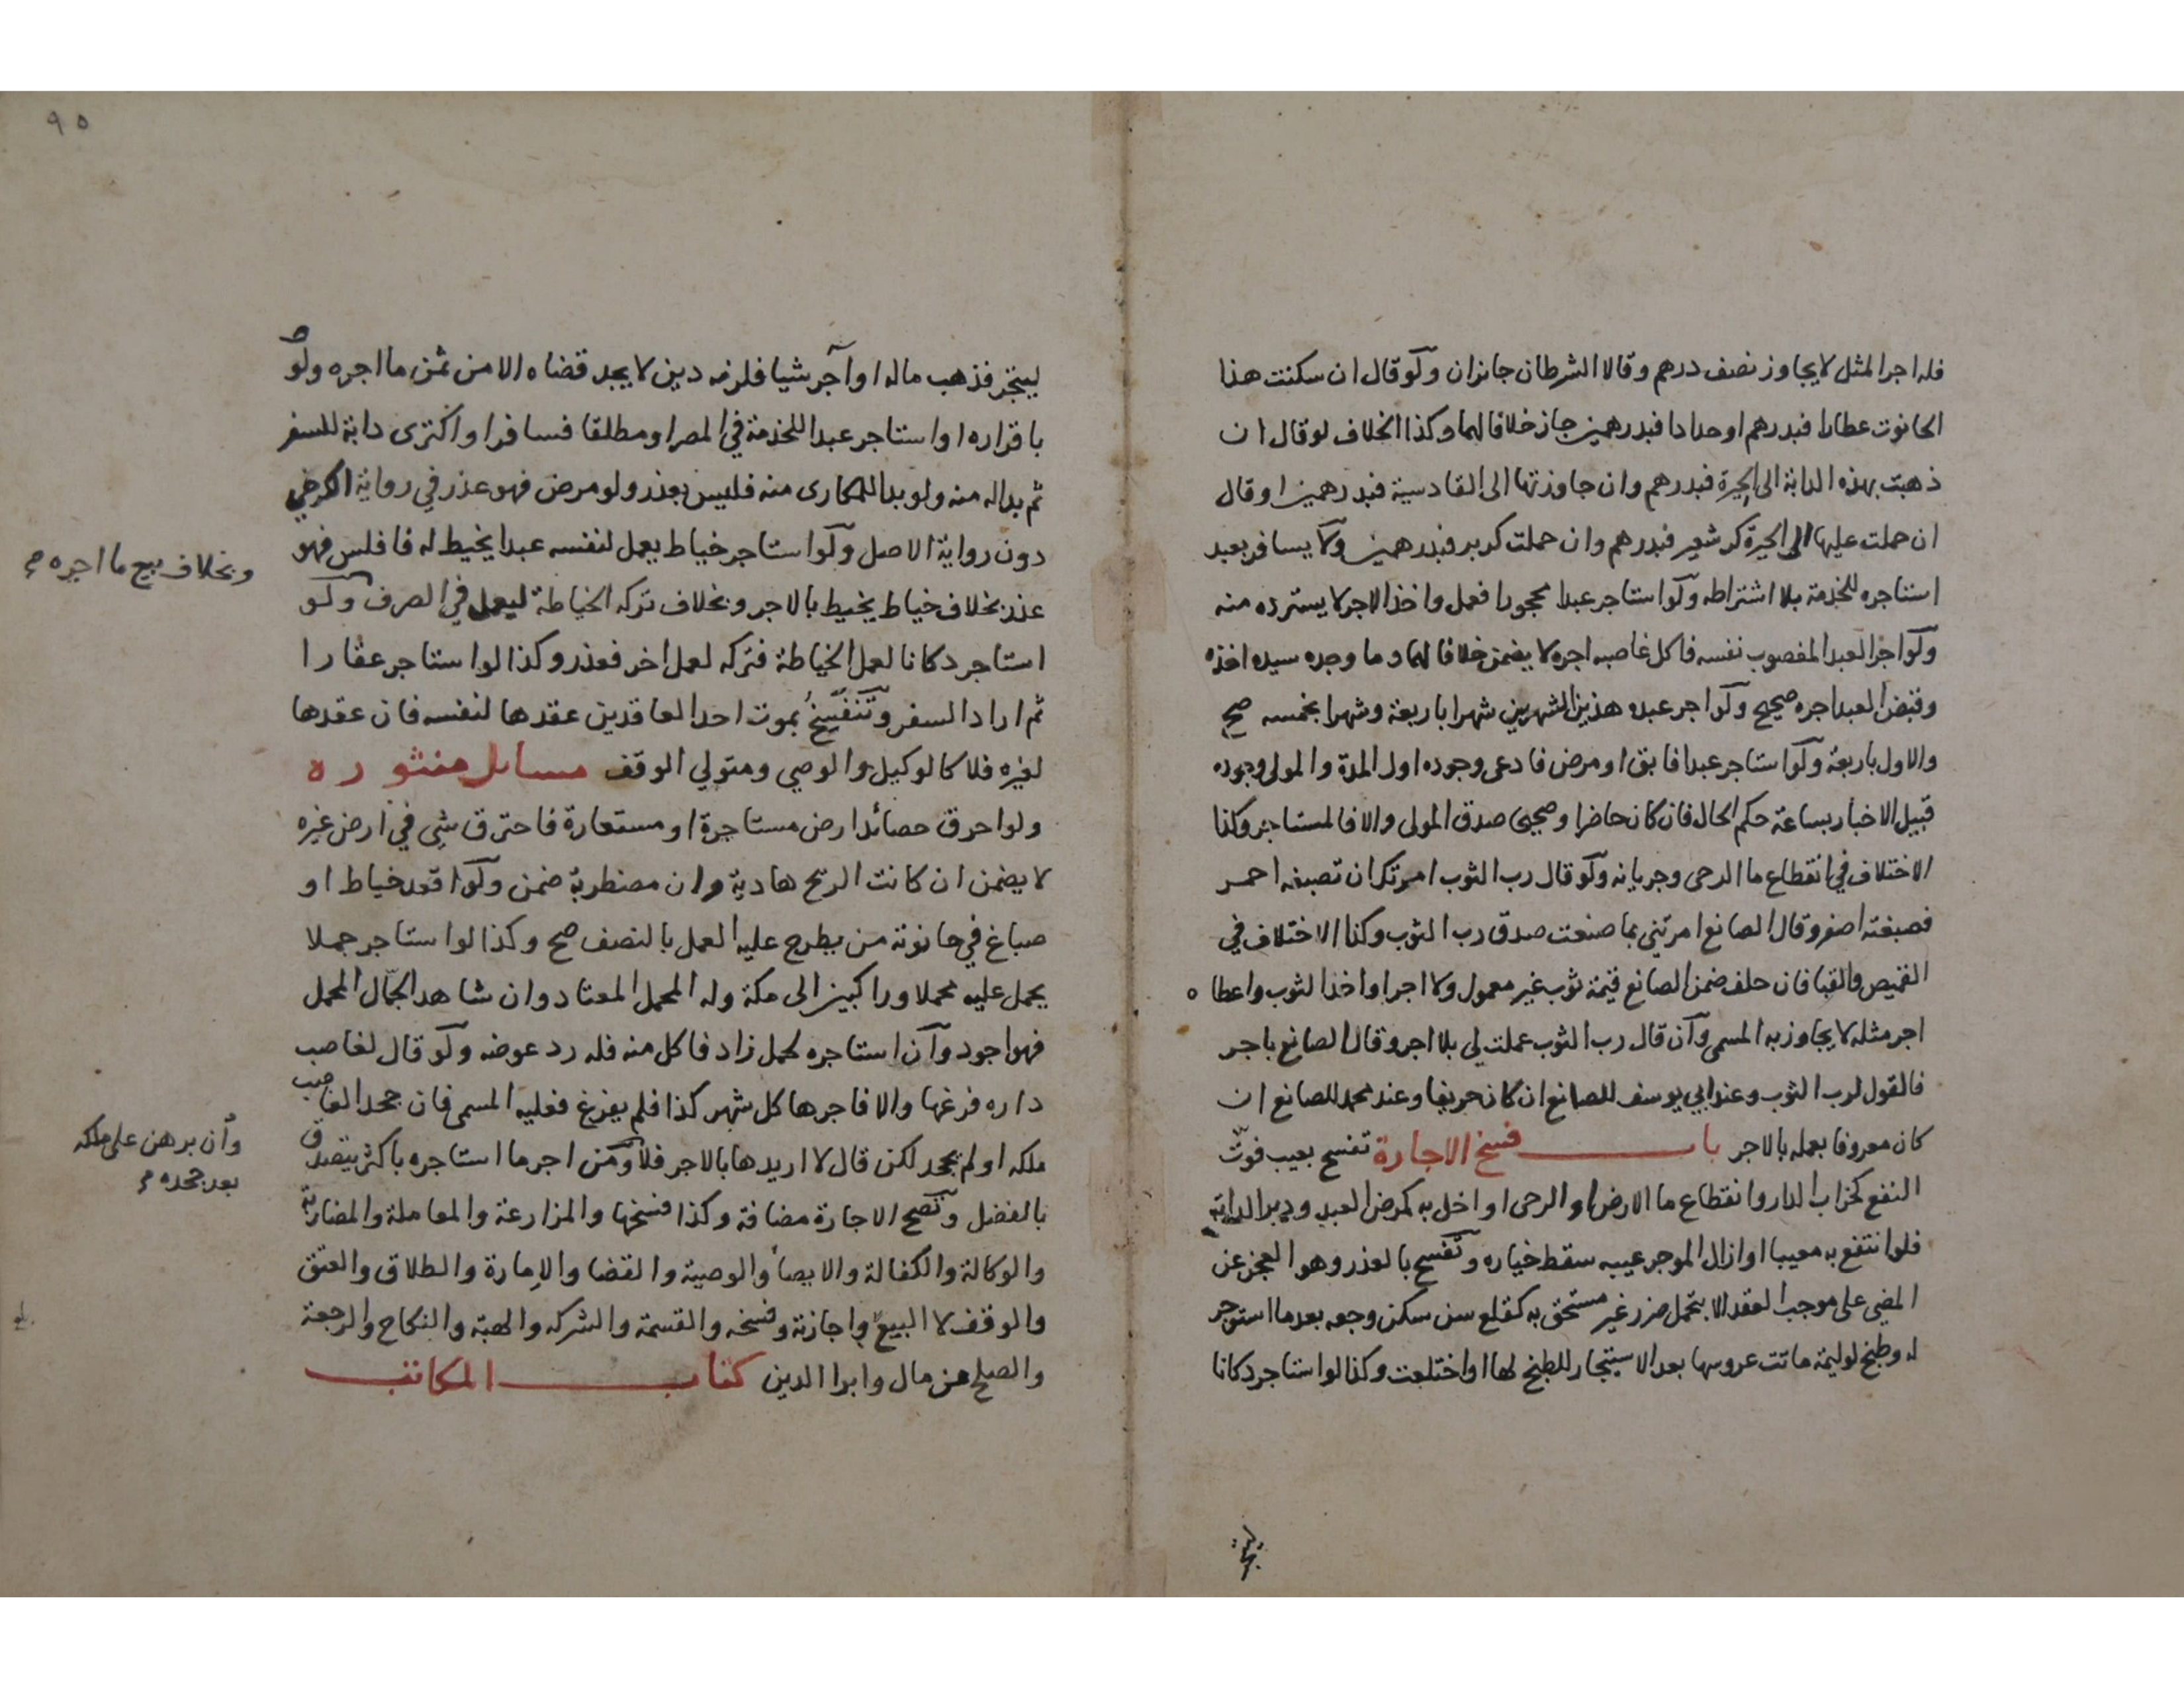 فله اجر المثل لا يجاوز نصف درهم وقالا الشرطان جائزان ولو قال ان سكنت هذا
الحانوت عطارا فبدرهم او حدادا فبدرهمين جاز خلافا لهما وكذا الخلاف لو قال ان
ذهبت بهذه الدابة الى الحيرة فبدرهم وان جاوزتها الى القادسية فبدرهمين او قال
ان حملت عليها الى الحيرة كر شعير فبدرهم وان حملت كر بر فبدرهمين ولا يسافر بعبد
استاجره للخدمة بلا اشتراطه ولو استاجر عبدا محجورا فعمل واخذ الاجر لا يسترده منه
ولو اجر العبد المغصوب نفسه فاكل غاصبه اجره لا يضمن خلافا لهما وما وجده سيده اخذه
وقبض العبد اجره صحيح ولو اجر عبده هذين الشهرين شهرا باربعة وشهرا بخمسه صح
والاول باربعة ولو استاجر عبدا فابق او مرض فادعى وجوده اول المدة والمولى وجوده
قبيل الاخبار بساعة حكم الحال فان كان حاضرا وصحيحا صدق المولى والا فالمستاجر وكذا
الاختلاف في انقطاع ما الرحى وجريانه ولو قال رب الثوب امرتك ان تصبغه احمر
فصبغته اصفر وقال الصانع امرتني بما صنعت صدق رب الثوب وكذا الاختلاف في
القميص والقبا فان حلف ضمن الصانع قيمة ثوب غير معمول ولا اجر او اخذ الثوب واعطاه
اجر مثله لا يجاوز به المسمى وان قال رب الثوب عملت لي بلا اجر وقال الصانع باجر
فالقول لرب الثوب وعند ابي يوسف للصانع ان كان حريفا وعند محمد للصانع ان
كان معروفا بعمله بالاجر باب فسخ الاجارة تفسخ بعيب فوت
النفع كخراب الدار وانقطاع ما الارض او الرحى او اخل به كمرض العبد ودبر الدابة
فلو انتفع به معيبا او ازال الموجر عيبه سقط خياره وتفسخ بالعذر وهو العجز عن
المضي على موجب العقد الا بتحمل ضرر غير مستحق به كقلع سن سكن وجعه بعد ما استوجر
له وطبخ لوليمة ماتت عروسها بعد الاستيجار للطبخ لها او اختلعت وكذا لو استاجر دكانا
٩٥
ليتجر فذهب ماله او آجر شيا فلزمه دين لا يجد قضاه الا من ثمن ما اجره ولو
باقراره او استاجر عبدا للخدمة في المصر او مطلقا فسافر او اكترى دابة للسفر
ثم بدا له منه ولو بدا للمكارى منه فليس بعذر ولو مرض فهو عذر في رواية الكرخي
دون رواية الاصل ولو استاجر خياط يعمل لنفسه عبدا يخيط له فافلس فهو
عذر بخلاف خياط يخيط بالاجر وبخلاف تركه الخياطة ليعمل في الصرف ولو
وبخلاف بيع ما اجره
استاجر دكانا لعمل الخياطة فتركه لعمل اخر فعذر وكذا لو استاجر عقارا
ثم اراد السفر وتنفسخ بموت احد العاقدين عقدها لنفسه فان عقدها
لغيره فلا كالوكيل والوصي ومتولي الوقف مسائل منثوره
ولو احرق حصائد ارض مستاجرة او مستعارة فاحترق شي في ارض غيره
لا يضمن ان كانت الريح هادية وان مضطربة ضمن ولو اقعد خياط او
صباغ في حانوته من يطرح عليه العمل بالنصف صح وكذا لو استاجر جملا
يحمل عليه محملا وراكبين الى مكة وله المحمل المعتاد وان شاهد الجمال المحمل
فهو اجود وان استاجره لحمل زاد فاكل منه فله رد عوضه ولو قال لغاصب
داره فرغها والا فاجرها كل شهر كذا فلم يفرغ فعليه المسمى فان جحد الغاصب
ملكه او لم يجحد لكن قال لا اريدها بالاجر فلا ومن اجر ما استاجره باكثر يتصدق
وان برهن على ملكه
بعد جحده
بالفضل وتصح الاجارة مضافة وكذا فسخها والمزارعة والمعاملة والمضاربة
والوكالة والكفالة والايصاء والوصية والقضا والإمارة والطلاق والعتق
والوقف لا البيع واجازته وفسخه والقسمة والشركه والهبة والنكاح والرجعة
والصلح عن مال وابرا الدين كتاب المكاتب